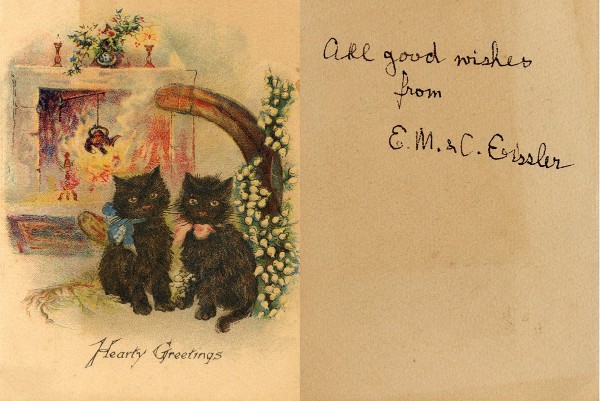 Hearty Greetings
All good wishes
from
E. M. & C. Eissler